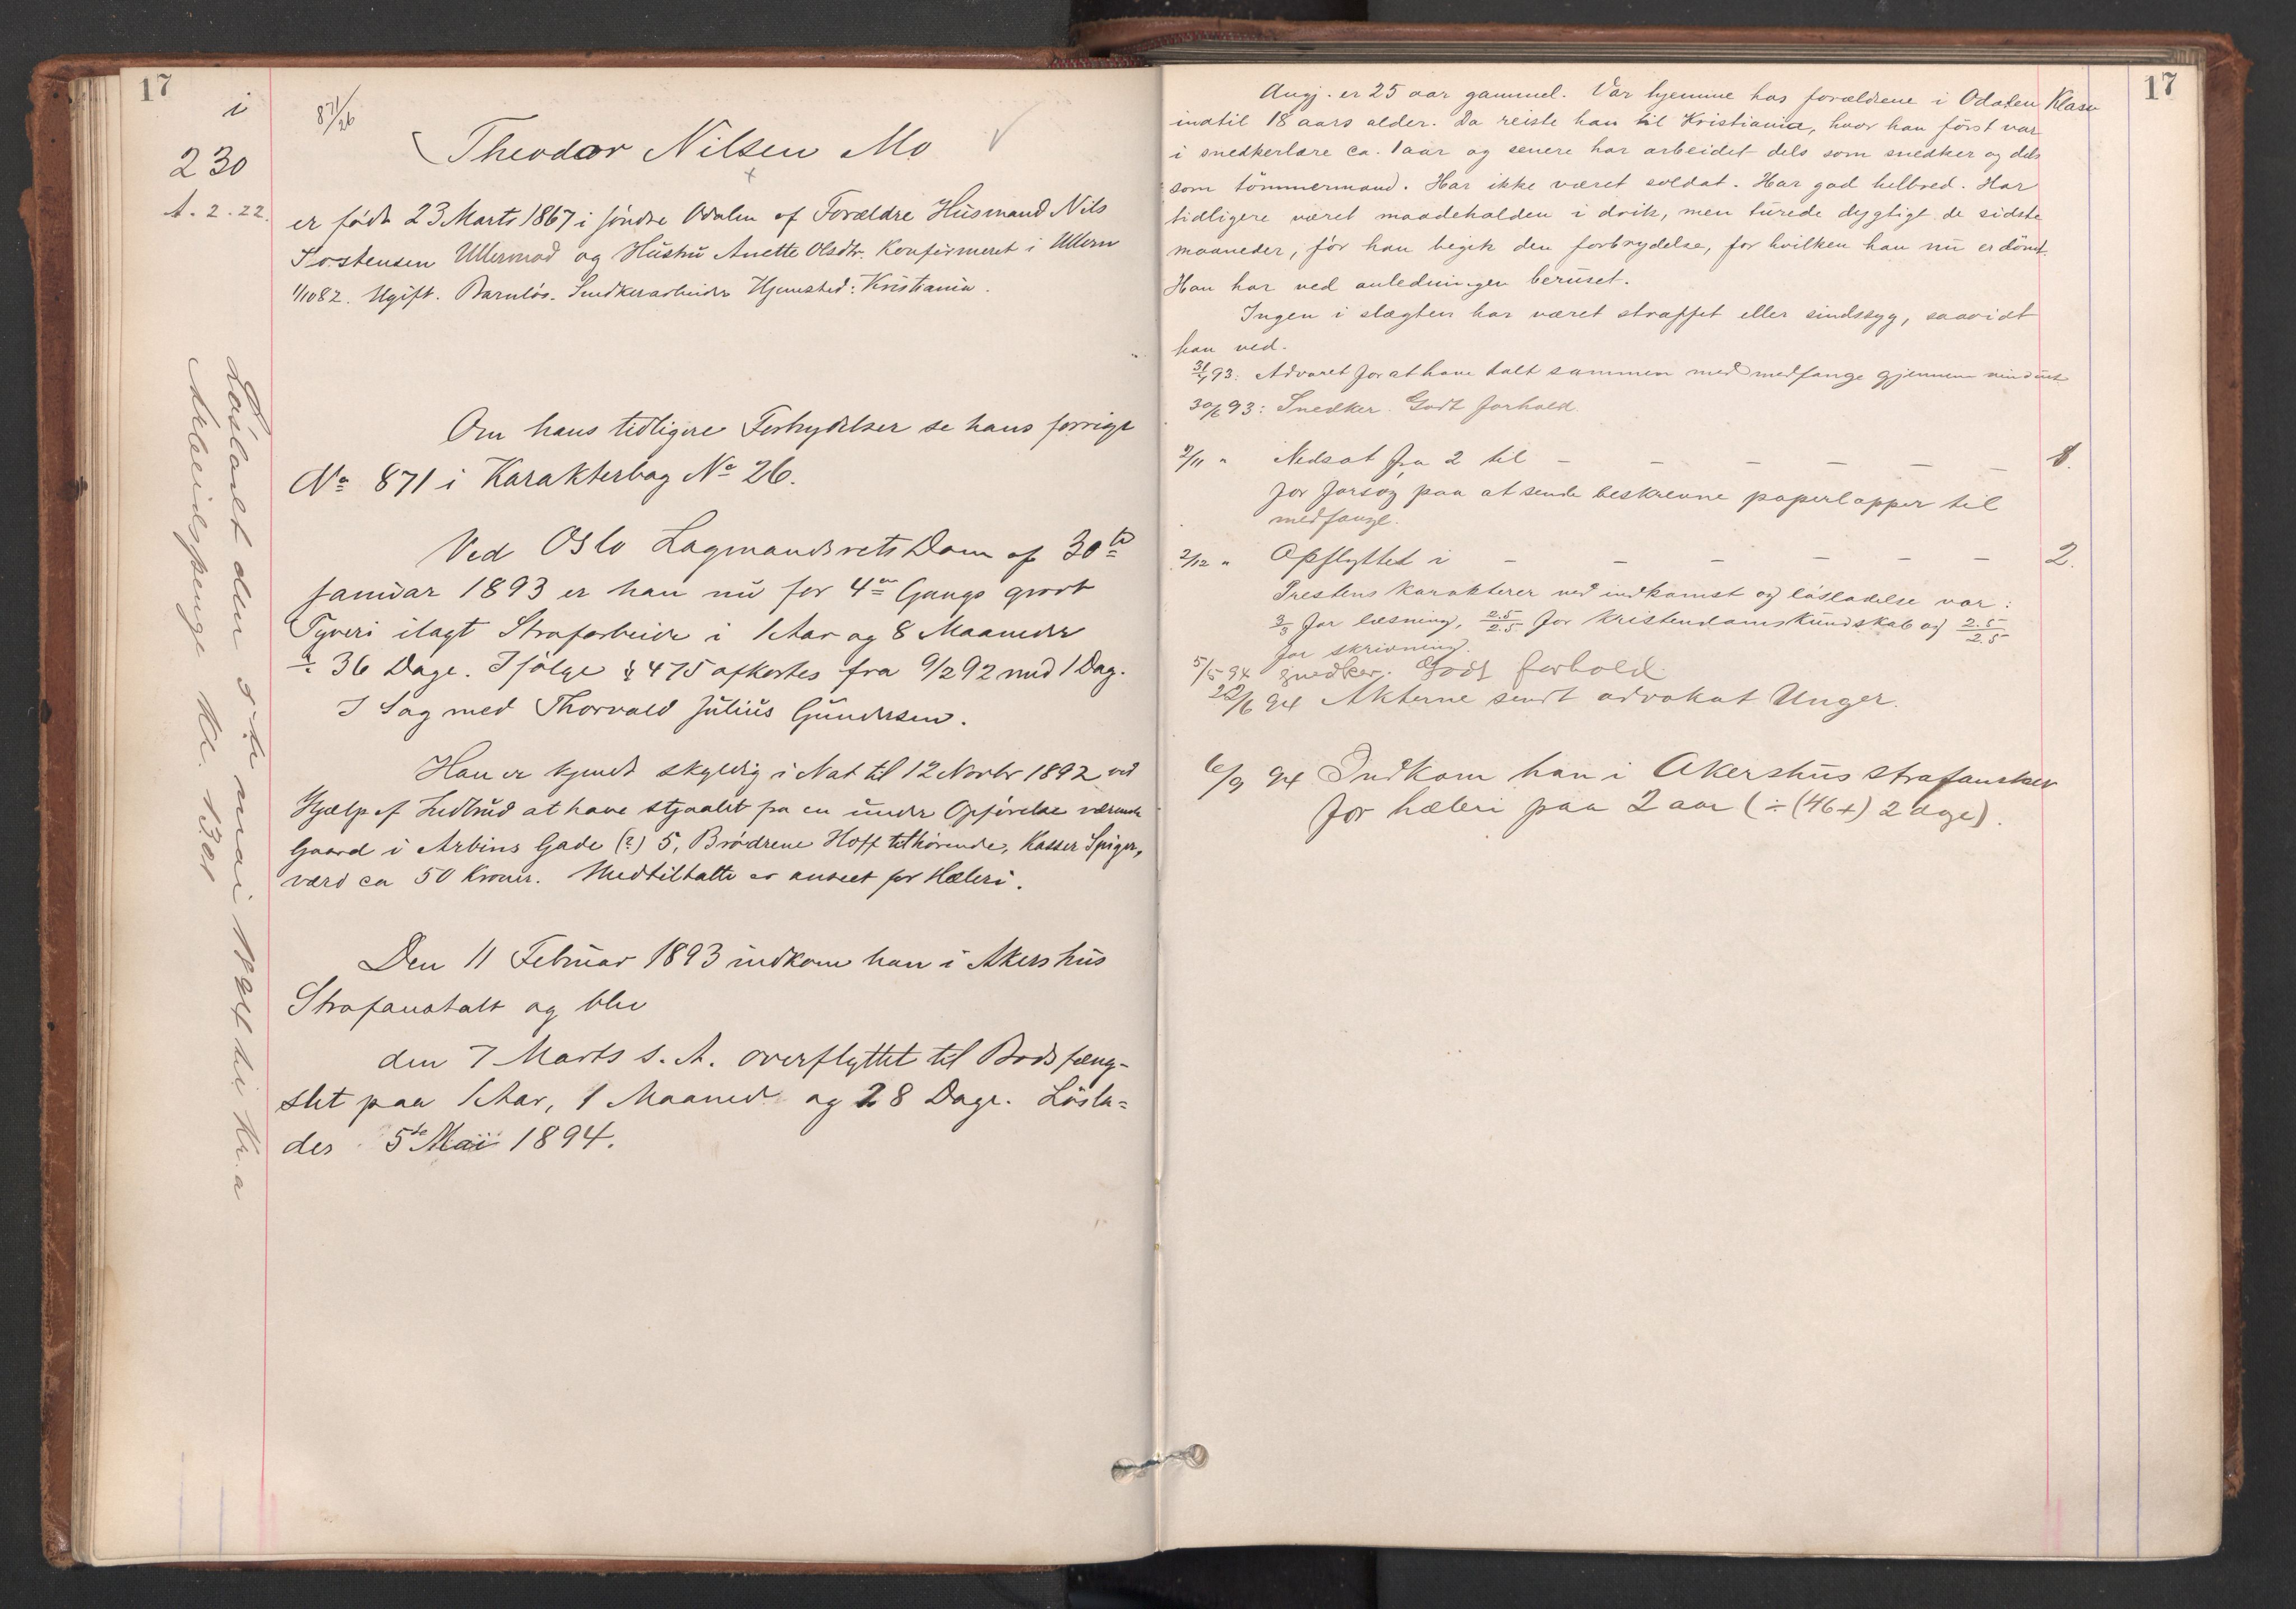 17
i
230
A. 2. 22.
871/26
Theodor Nilsen Mo
er født 23 Marts 1867 i søndre Odalen af Forældre Husmand Nils
Tostensen Ullermod og Hustru Anette Olsdtr. Konfirmeret i Ullern
1/10 82. Ugift. Barnløs. Snedkerarbeider Hjemsted: Kristiania.
Om hans tidligere Forbrydelser se hans forrige
No 871 i Karakterbog No 26.
Ved Oslo Lagmandsrets Dom af 30te
Januar 1893 er han nu for 4de Gangs grovt
Tyveri ilagt Strafarbeide i 1 Aar og 8 Maaneder
÷ 36 Dage. Ifølge § 475 afkortes fra 9/2 92 med 1 Dag.
I Sag med Thorvald Julius Gundersen.
Han er kjendt skyldig i Nat til 12 Novbr 1892 ved
Hjælp af at have stjaalet fra en under Opførelse værende
Gaard i Arbins Gade (?) 5, Brødrene Hoff tilhørende, Kasser Spiger,
værd ca 50 Kroner. Medtiltalte er anseet for Hæleri.
Den 11 Februar 1893 indkom han i Akershus
Strafanstalt og blev
den 7 Marts s. A. overflyttet til Bodsfæng-
slet paa 1 Aar, 1 Maaned og 28 Dage. Løsla-
des 5te Mai 1894.
Løsladt den 5-te mai 1894 til Kr.a
Arbeidspenge Kr. 13.01
17
Angj. er 25 aar gammel. Var hjemme hos forældrene i Odalen Klasse
indtil 18 aars alder. Da reiste han til Kristiania, hvor han først var
i snedkerlære ca. 1 aar og senere har arbeidet dels som snedker og dels
som tømmermand. Har ikke været soldat. Har god helbred. Har
tidligere været maadeholden i drik, men turede dygtigt de sidste
maaneder, før han begik den forbrydelse, for hvilken han nu er dømt.
Han har ved anledningen beruset.
Ingen i slægten har været straffet eller sindssyg, saavidt
han ved.
93: Advaret for at have talt sammen med medfange gjennem vinduet
30/6 93: Snedker. Godt forhold.
2/11 " Nedsat fra 2 til - - - - - 1.
for forsøg paa at sende beskrevne papirlapper til
medfange.
2/12 " Opflyttet i - - - - - - 2.
Prestens karakterer ved indkomst og løsladelse var:
3/3 for læsning, 2.5/2.5 for kristendomskundskab og 2.5/2.5
for skrivning.
5/5 94 snedker. Godt forhold.
22/6 94 Akterne sendt advokat Unger.
6/9 94 Indkom han i Akershus strafanstalt
for hæleri paa 2 aar (÷ (46+) 2 dage).